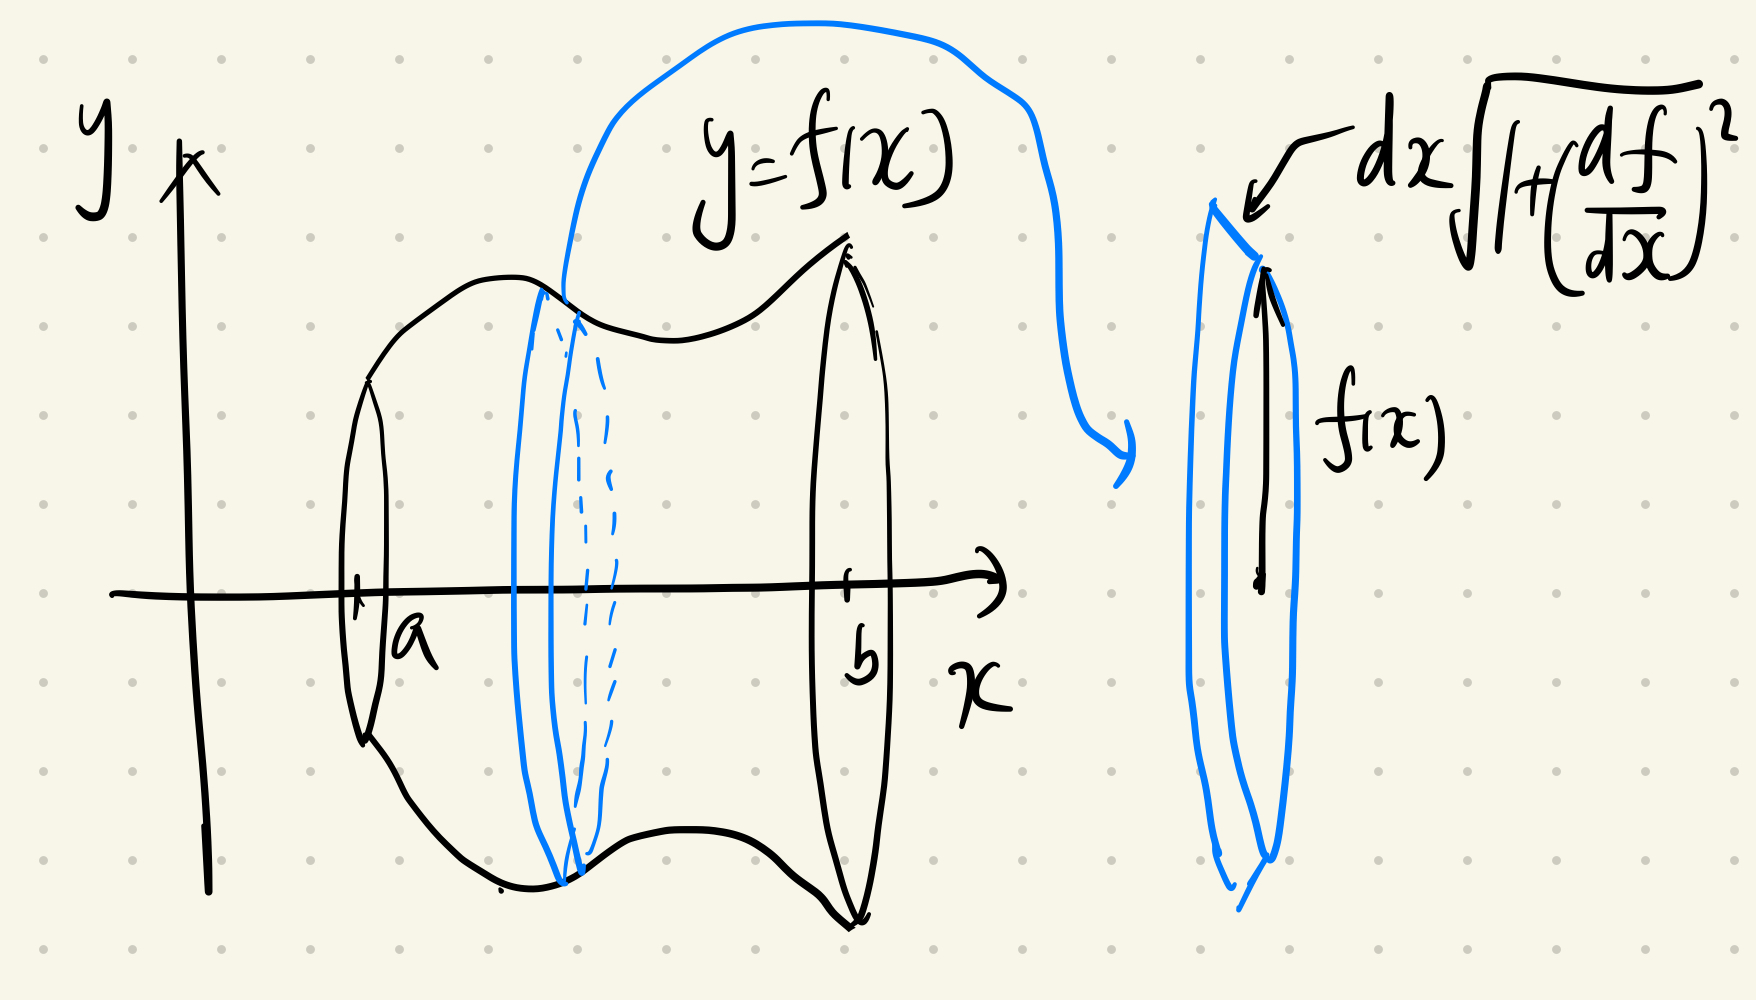 y
y=f(x)
dx√1+(df/dx)²
f(x)
a
b
x